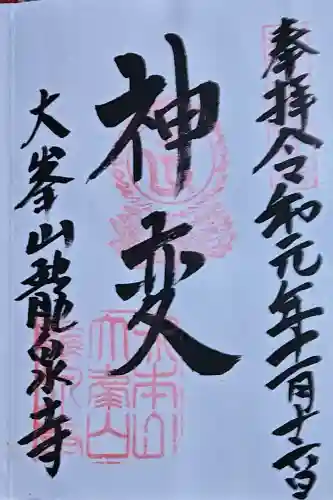 奉拝令和元年十一月十六日
神変
大峯山龍泉寺